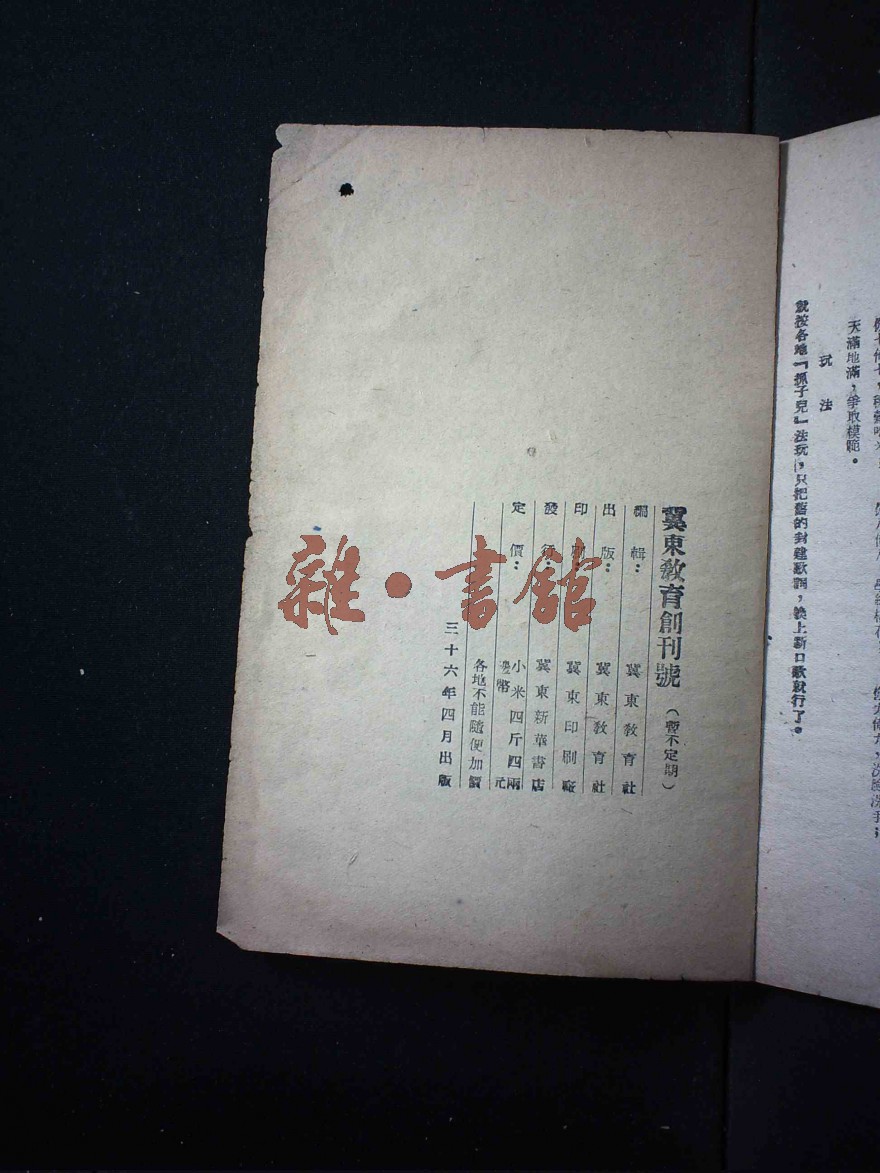 天滿地滿，爭取模範。
玩法
就按各地『抓子兒』法玩，只把舊的封建歌詞，換上新口歌就行了。
冀東教育創刊號（暫不定期）
編輯：冀東教育社
出版：冀東教育社
印刷：冀東印刷廠
發行：冀東新華書店
定價：小米四斤四兩
邊幣　元
各地不能隨便加價
三十六年四月出版
雜·書館